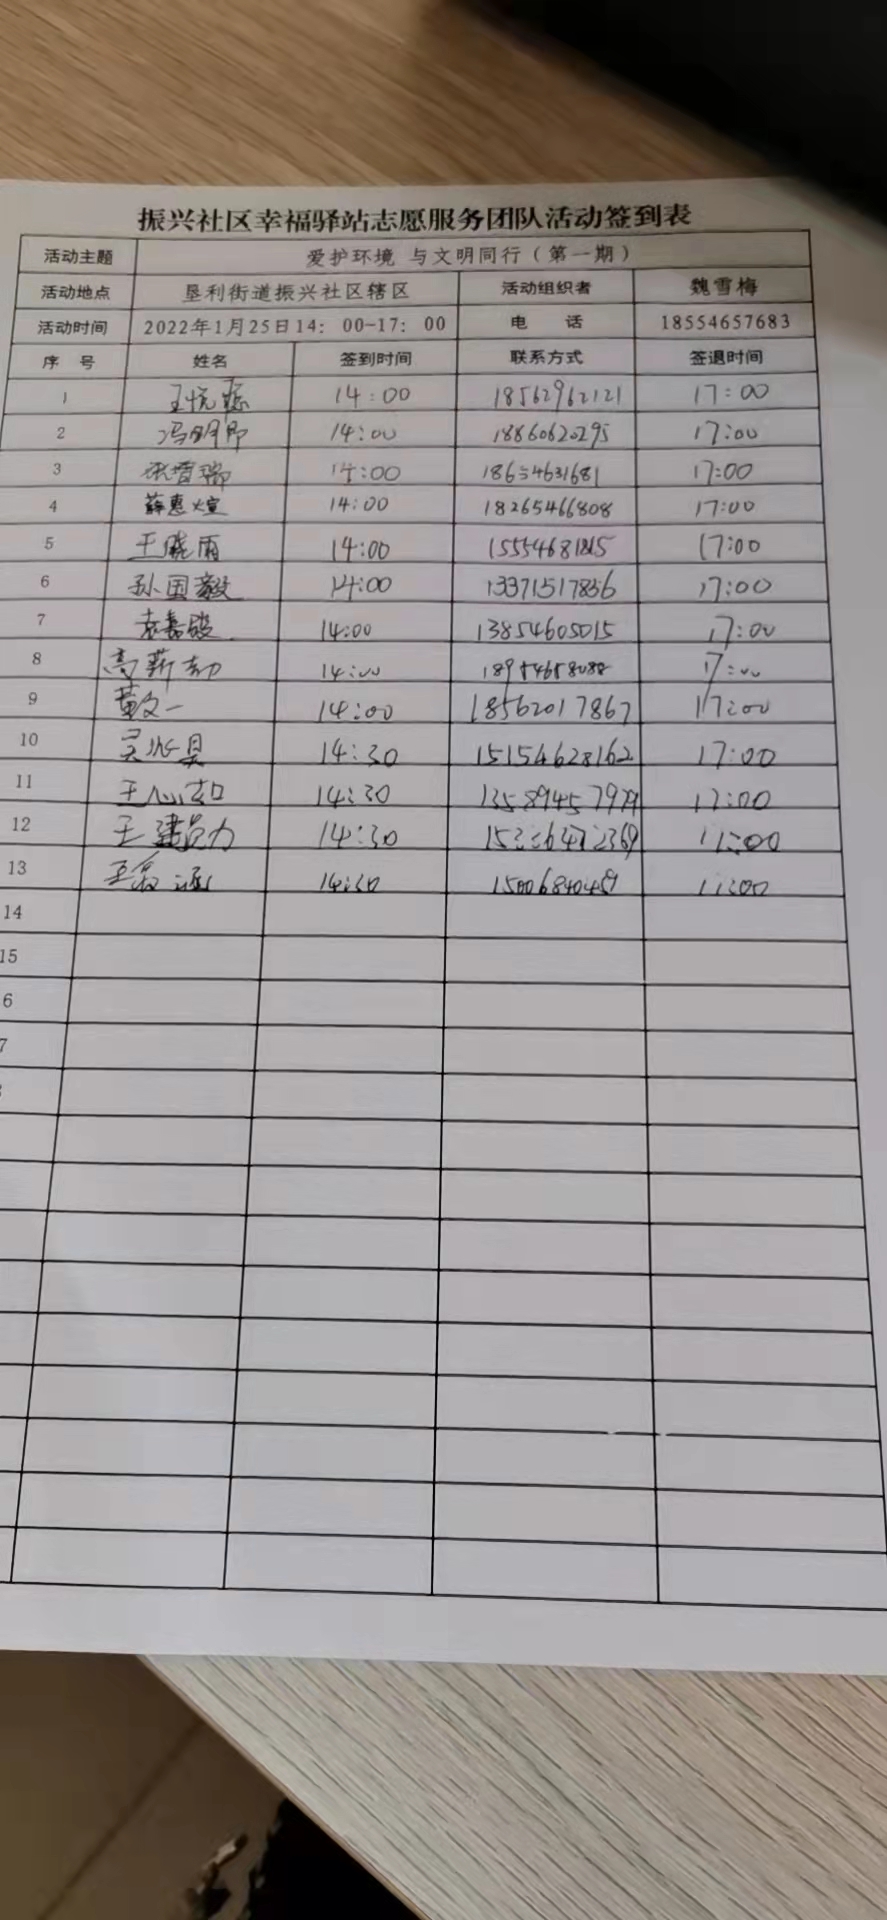 振兴社区幸福驿站志愿服务团队活动签到表
活动主题 爱护环境 与文明同行（第一期）
活动地点 垦利街道振兴社区辖区 活动组织者 魏雪梅
活动时间 2022年1月25日14：00-17：00 电 话 18554657683
序 号 姓名 签到时间 联系方式 签退时间
1 14:00 18562962121 17:00
2 14:00 18860620295 17:00
3 14:00 18654631681 17:00
4 薛惠煊 14:00 18265466808 17:00
5 王晓雨 14:00 17:00
6 孙国毅 14:00 13371517856 17:00
7 袁嘉骏 14:00 13854605015 17:00
8 高薪劫 14:00 17:00
9 黄文一 14:00 18562017867 17:00
10 14:30 15154628162 17:00
11 王心却 14:30 17:00
12 14:30
13 14:30
14
15
6
7